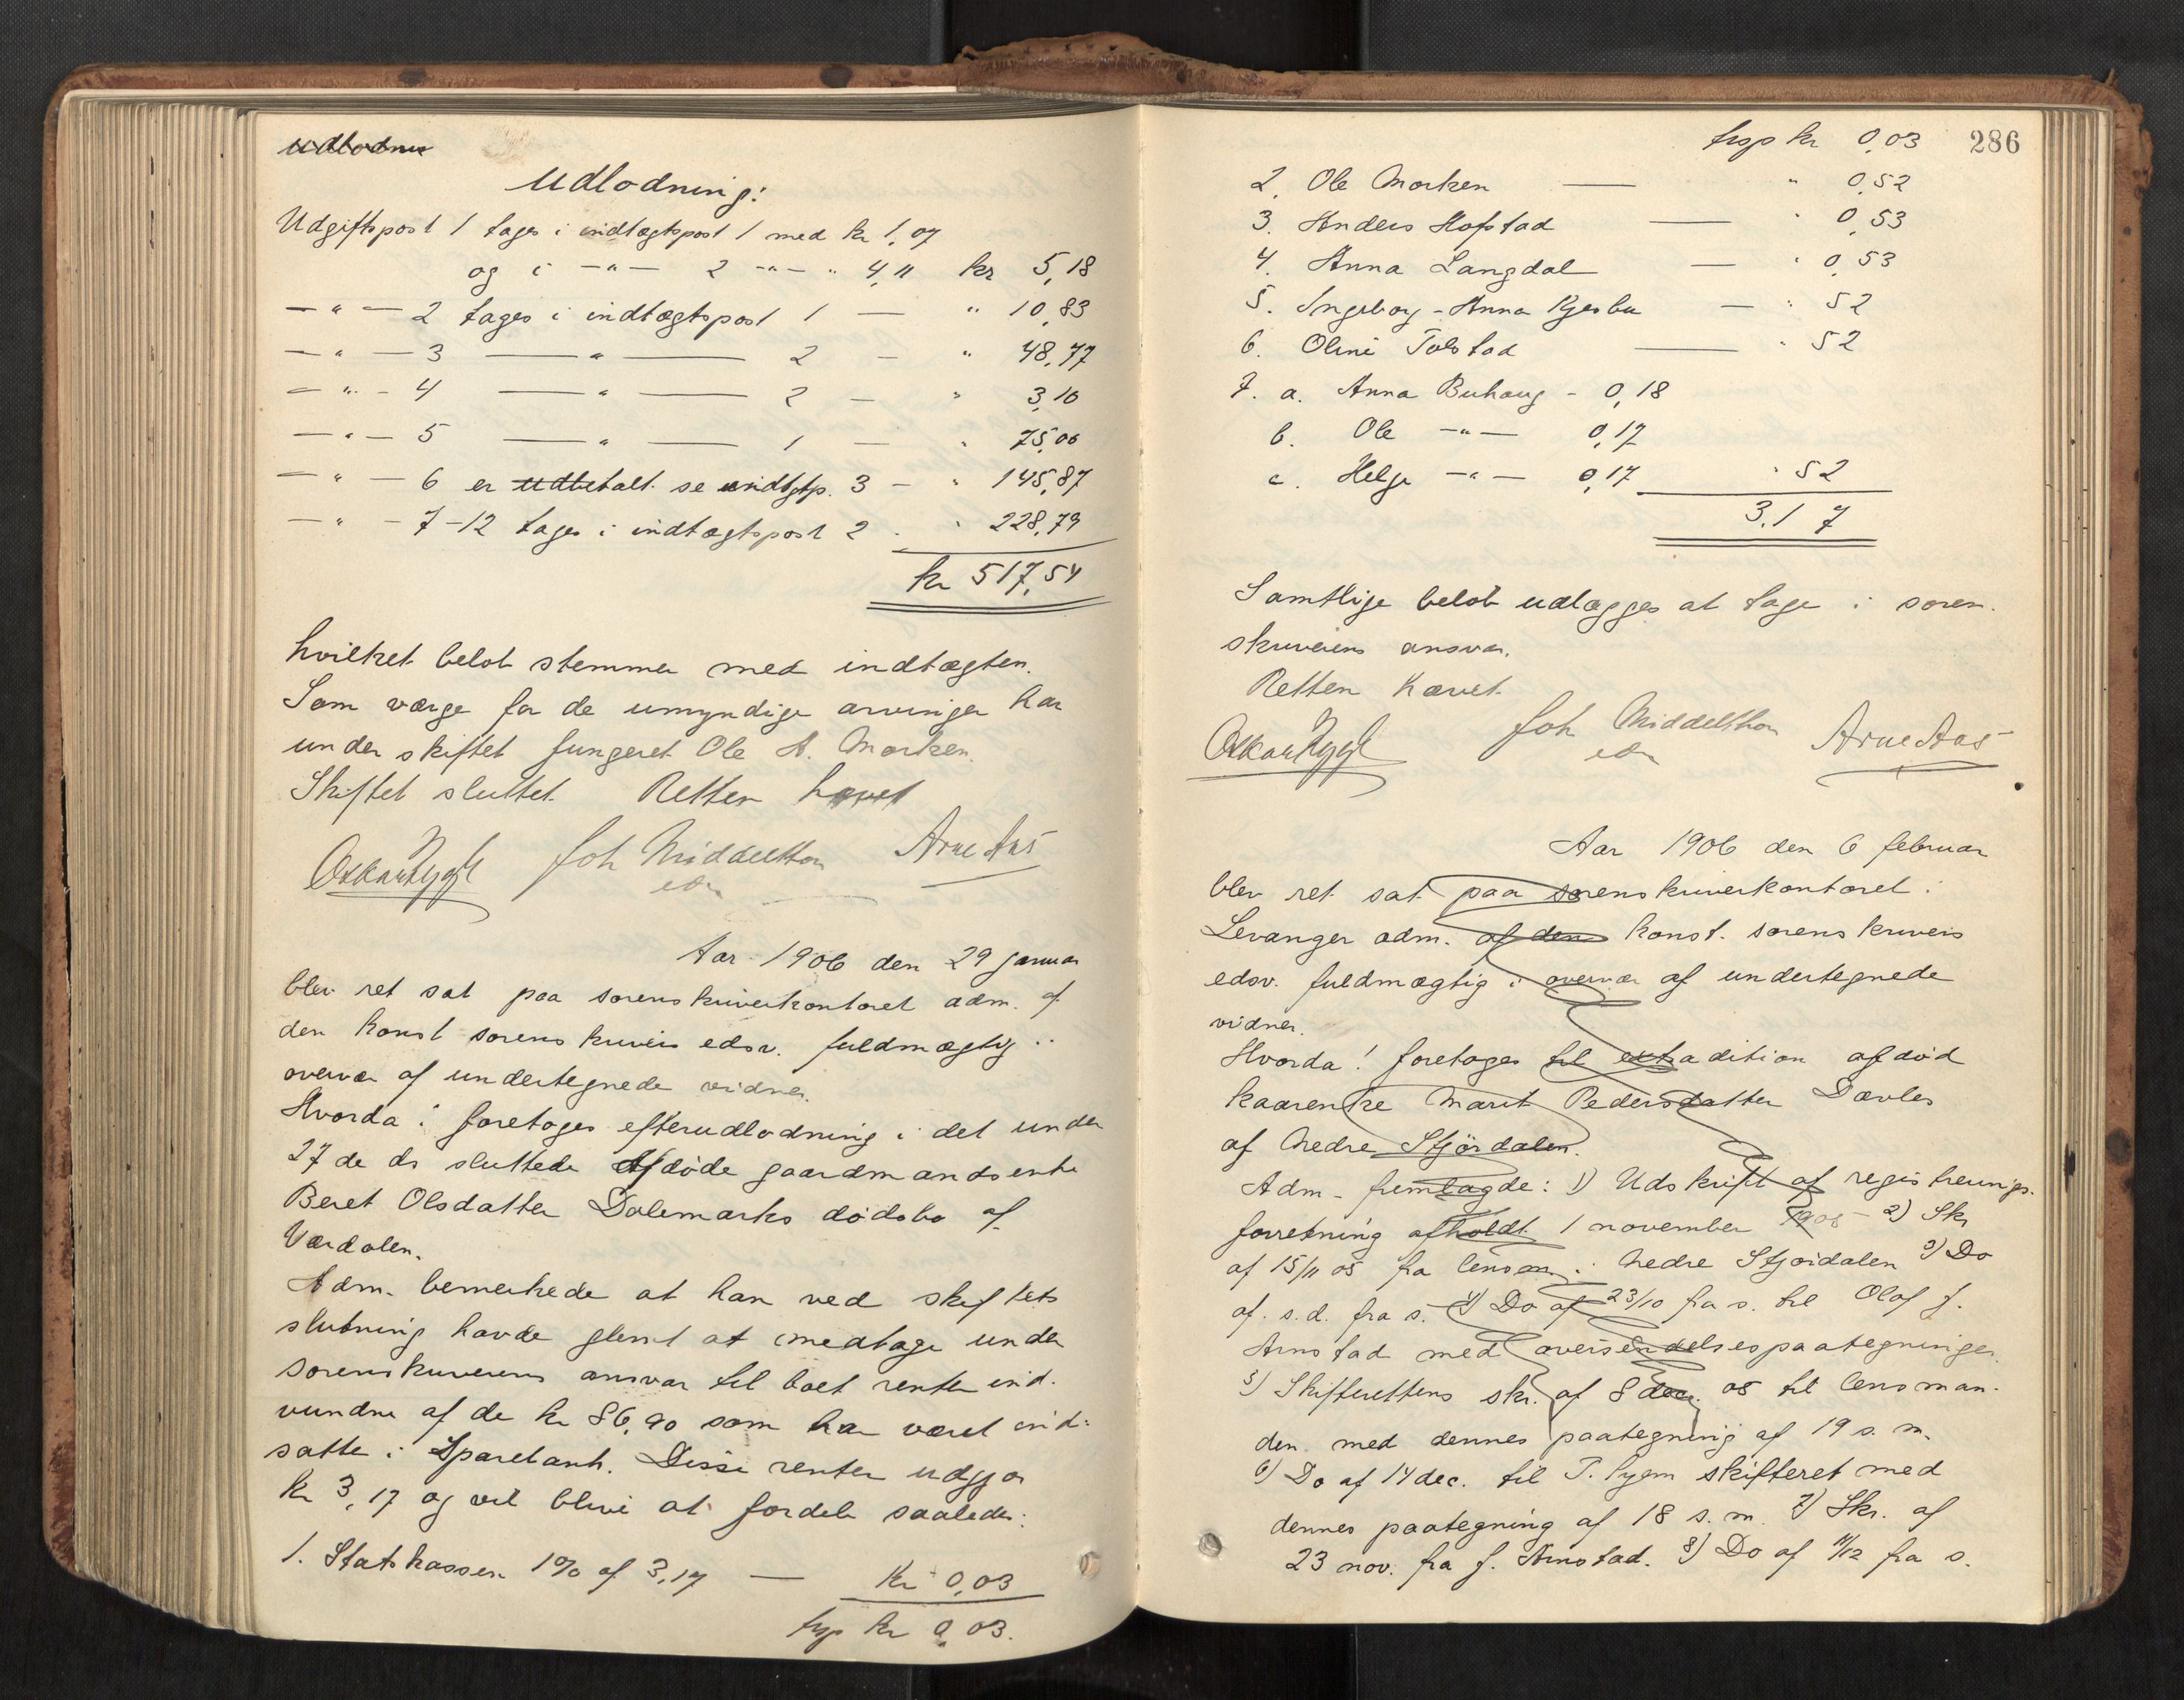 udlodnin
Udlodning:
Udgiftspost 1 tages i indtægtspost 1 med kr 1,07
og i —"— 2 —"— " 4,11 kr 5,18
—"— 2 tages i indtægtspost 1 — " 10,83
—"— 3 —"— 2 — " 48,77
—"— 4 —"— 2 — " 3,10
—"— 5 —"— 1 — " 75,00
—"— 6 er udbetalt se indtgtp. 3 — " 145,87
—"— 7-12 tages i indtægtspost 2 " 228,79
kr 517,54
hvilket beløb stemmer med indtægten.
Som værge for de umyndige arvinger har
under skiftet fungeret Ole A. Morken.
Skiftet sluttet. Retten hævet
Oskar Rygh Joh Middelthon Arne Aas
edsv
Aar 1906 den 29 januar
blev ret sat paa sorenskriverkontoret adm. af
den konst sorenskrivers edsv. fuldmægtig i
overvær af undertegnede vidner.
Hvorda: foretoges efterudlodning i det under
27 de ds sluttede afdøde gaardmandsenke
Beret Olsdatter Dalemarks dødsbo af
Værdalen.
Adm. bemerkede at han ved skiftets
slutning havde glemt at medtage under
sorenskriverens ansvar til boet renter ind-
vundne af de kr 86,90 som har været ind-
satte i Sparebank. Disse renter udgjør
kr 3,17 og vil blive at fordele saaledes:
1. Statskassen 1% af 3,17 — kr 0,03
trsp kr 0,03.
trsp kr 0,03 286
2. Ole Morken — " 0,52
3. Anders Hofstad — " 0,53
4. Anna Langdal — " 0,53
5. Ingeborg-Anna Kjesbu — " 52
6. Oline Tolstad — " 52
7. a. Anna Buhaug - 0,18
b. Ole —"— 0,17
c. Helge —"— 0,17 " 52
3.17
Samtlige beløb udlægges at tage i soren-
skriverens ansvar.
Retten hævet.
Oskar Rygh Joh Middelthon Arne Aas
edsv
Aar 1906 den 6 februar
blev ret sat paa sorenskriverkontoret i
Levanger adm. af den konst. sorenskrivers
edsv. fuldmægtig i overvær af undertegnede
vidner.
Hvorda! foretoges til extradition afdød
kaarenke Marit Pedersdatter Dævles
af Nedre Stjørdalen.
Adm. fremlagde: 1) Udskrift af registrerings-
forretning afholdt 1 november 1905 2) Skr
af 15/11 05 fra lensm. i Nedre Stjørdalen 3) Do
af s.d. fra s. 4) Do af 23/10 fra s. til Olaf J.
Arnstad med oversendelsespaategninger.
5) Skifterettens skr. af 8 dec. 05 til lensman-
den med dennes paategning af 19 s. m.
6) Do af 14 dec. til skifteret med
dennes paategning af 18 s. m. 7) Skr. af
23 nov. fra J. Arnstad. 8) Do af 11/12 fra s.